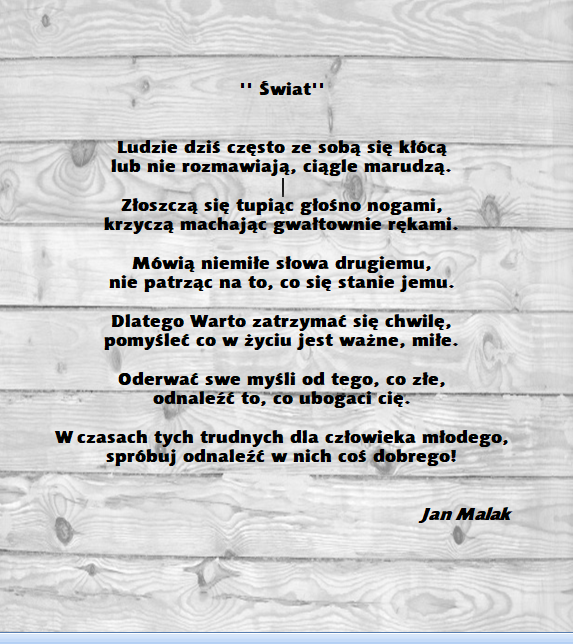 '' Świat''
Ludzie dziś często ze sobą się kłócą
lub nie rozmawiają, ciągle marudzą.
Złoszczą się tupiąc głośno nogami,
krzyczą machając gwałtownie rękami.
Mówią niemiłe słowa drugiemu,
nie patrząc na to, co się stanie jemu.
Dlatego Warto zatrzymać się chwilę,
pomyśleć co w życiu jest ważne, miłe.
Oderwać swe myśli od tego, co złe,
odnaleźć to, co ubogaci cię.
W czasach tych trudnych dla człowieka młodego,
spróbuj odnaleźć w nich coś dobrego!
Jan Malak